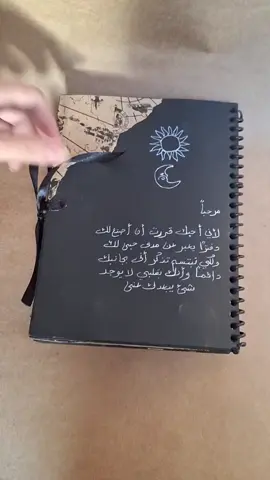 مرحباً
لأني أحبك قررت أن أصنع لك
دفترًا يعبر عن مدى حبي لك
ولكي تبتسم تذكر أني بجانبك
دائمًا وأنك بقلبي لا يوجد
شئ يبعدك عني